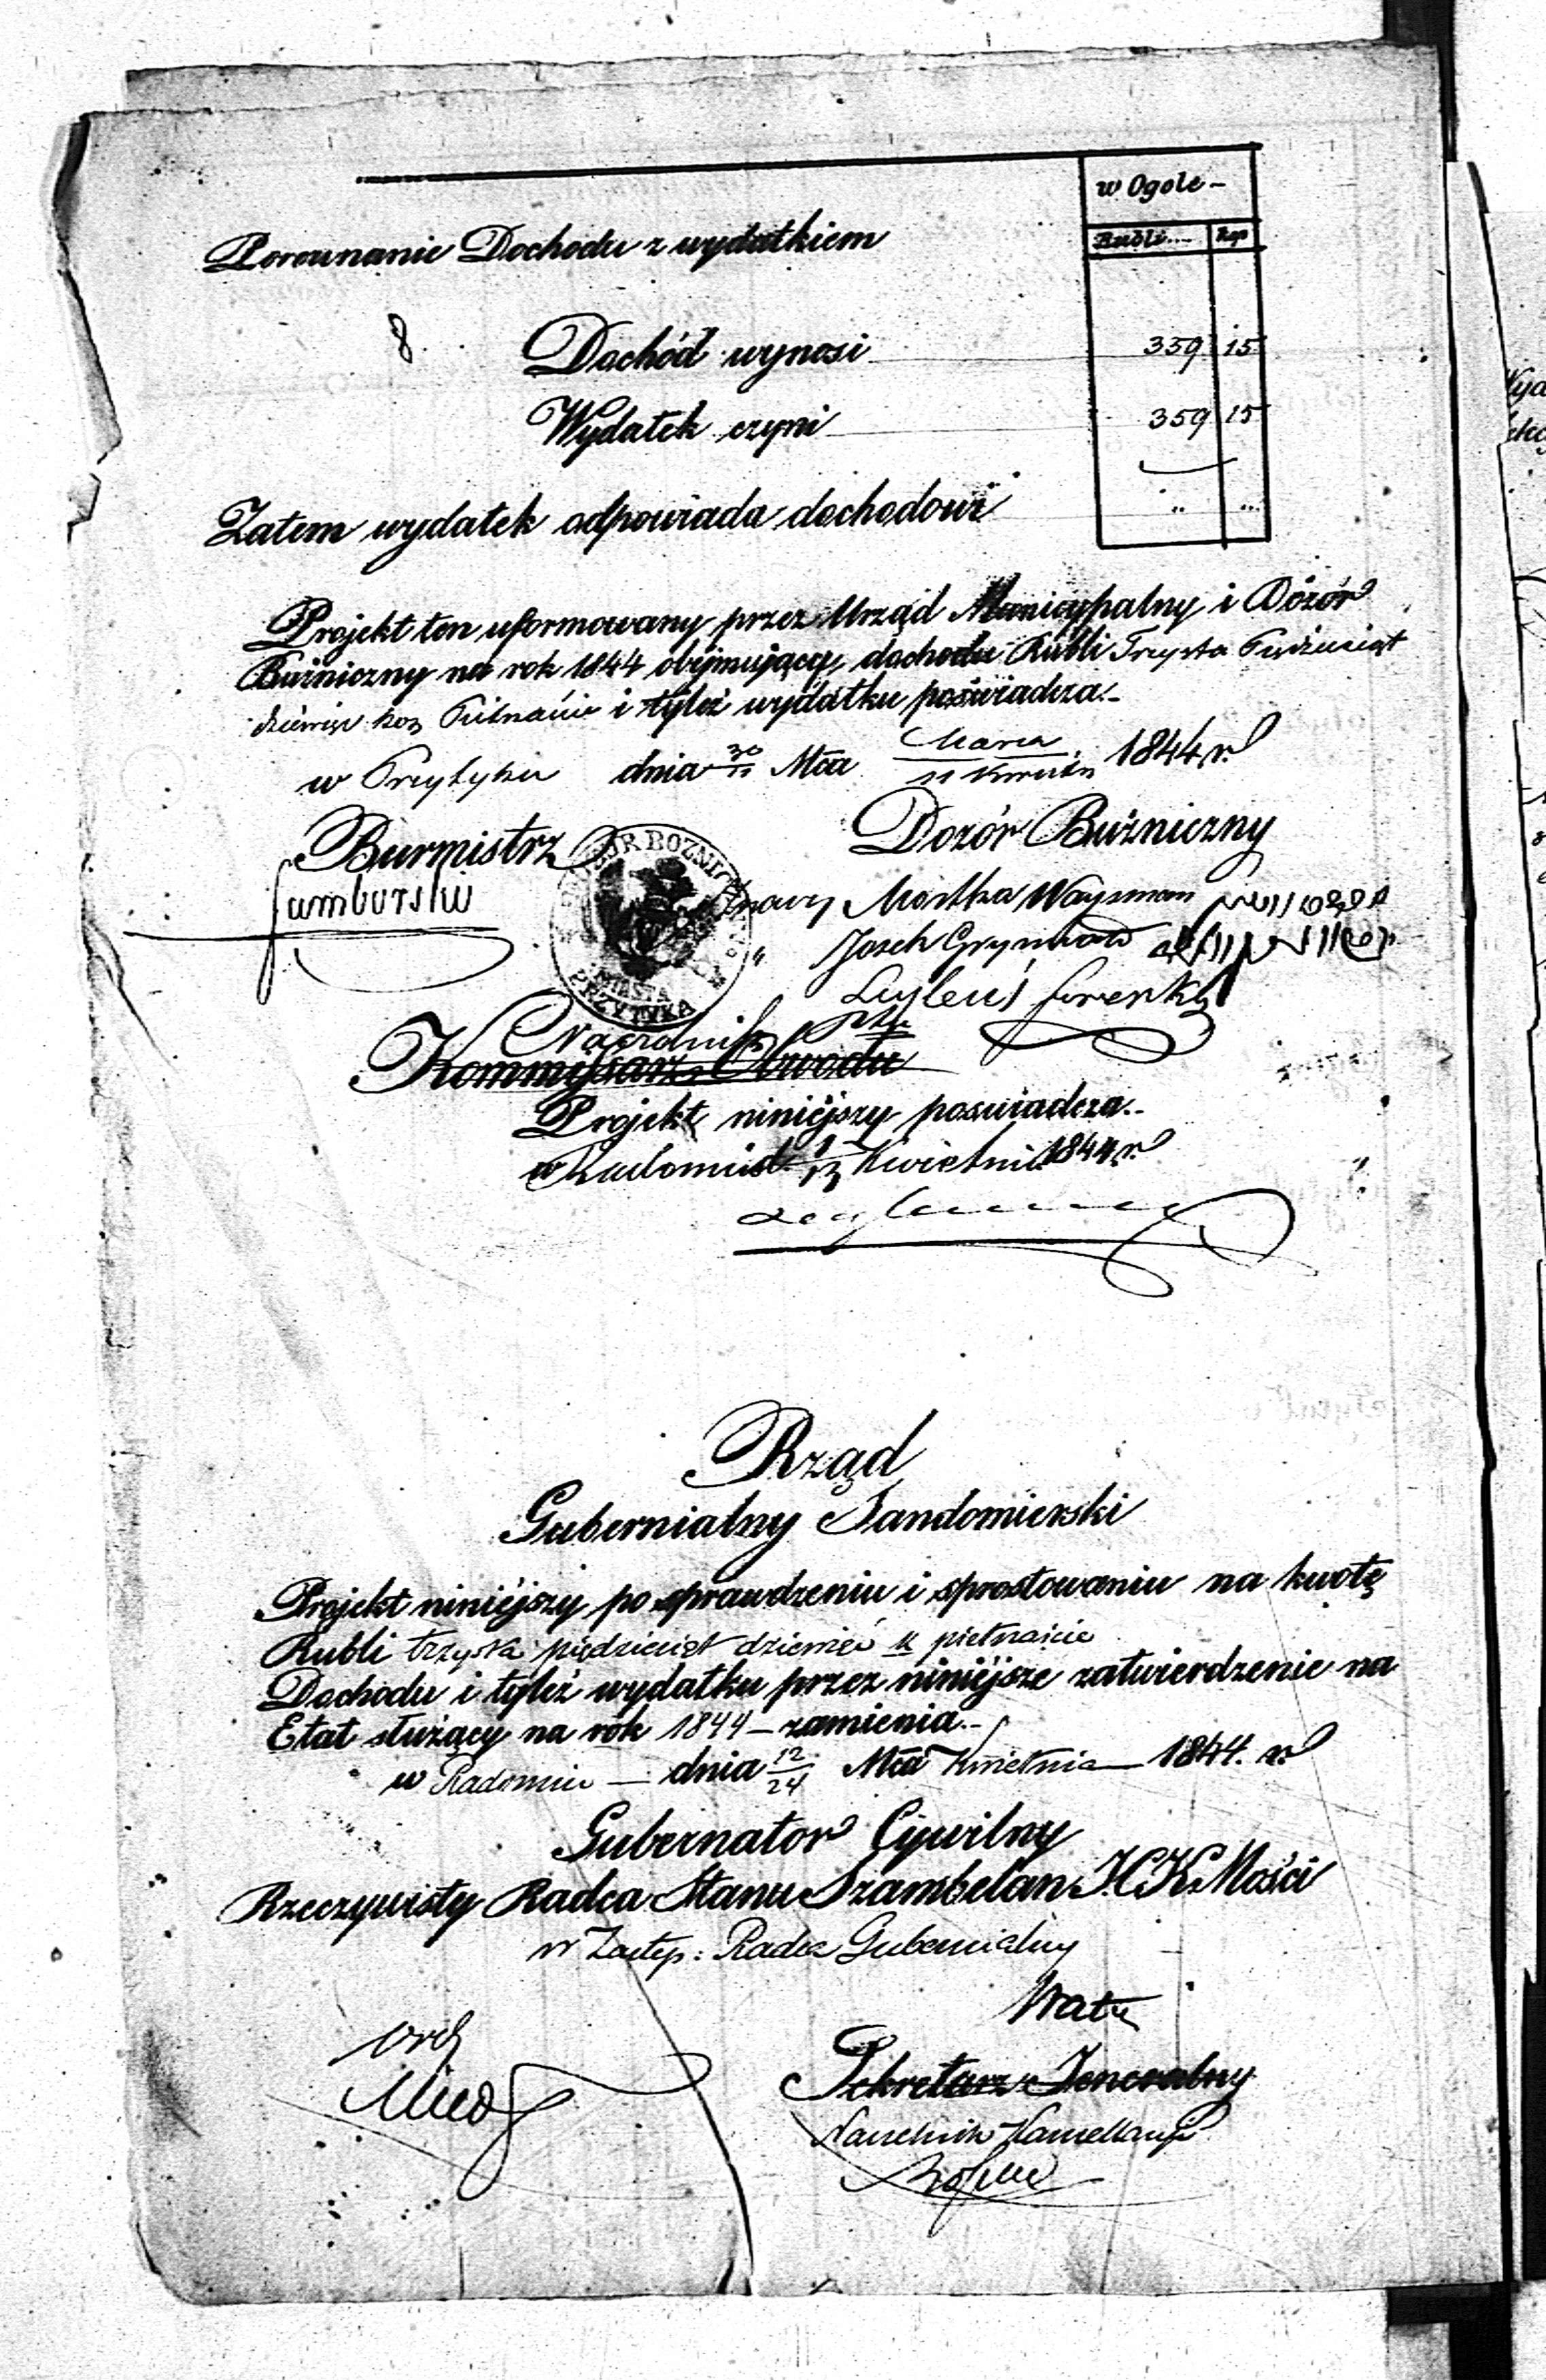 w Ogole -
Rubli.... Kop
Porownanie Dochodu z wydatkiem
8.
Dochód wynosi 359 15
Wydatek czyni 359 15
Zatem wydatek odpowiada dochodowi " "
Projekt ten uformowany przez Urząd Municypalny i Dozór
Bużniczny na rok 1844 obejmujący dochodu Rubli Trzysta Pięćdziesiąt
dziewięć kop Pietnaście i tyleż wydatku poświadcza.-
w Przytyku dnia 30/11 Mca Marca/11 Kwietn 1844 r.
Burmistrz
Dozór Bużniczny
DOZÓR BOZNICZNY
MIASTA
PRZYTYKA
Znaczy Mortka Waysman
" Josek Grynbaum
Naczelnik Ptu
Kommissarz Obwodu
Projekt niniéjszy poswiadcza.-
w Radomiu d. 1/13 Kwietnia 1844 r.
Rząd
Gubernialny Sandomierski
Projekt niniéjszy po sprawdzeniu i sprostowaniu na kwotę
Rubli trzysta pięćdziesiąt dziewięć k pietnaście
Dochodu i tyleż wydatku przez niniéjsze zatwierdzenie na
Etat służący na rok 1844 - zamienia.-
w Radomiu - dnia 12/24 Mca Kwietnia - 1844. r.
Gubernator Cywilny
Rzeczywisty Radca Stanu Szambelan J.C.K. Mości
w Zastęp: Radca Gubernialny
Sekretarz Jeneralny
Naczelnik Kancellaryi